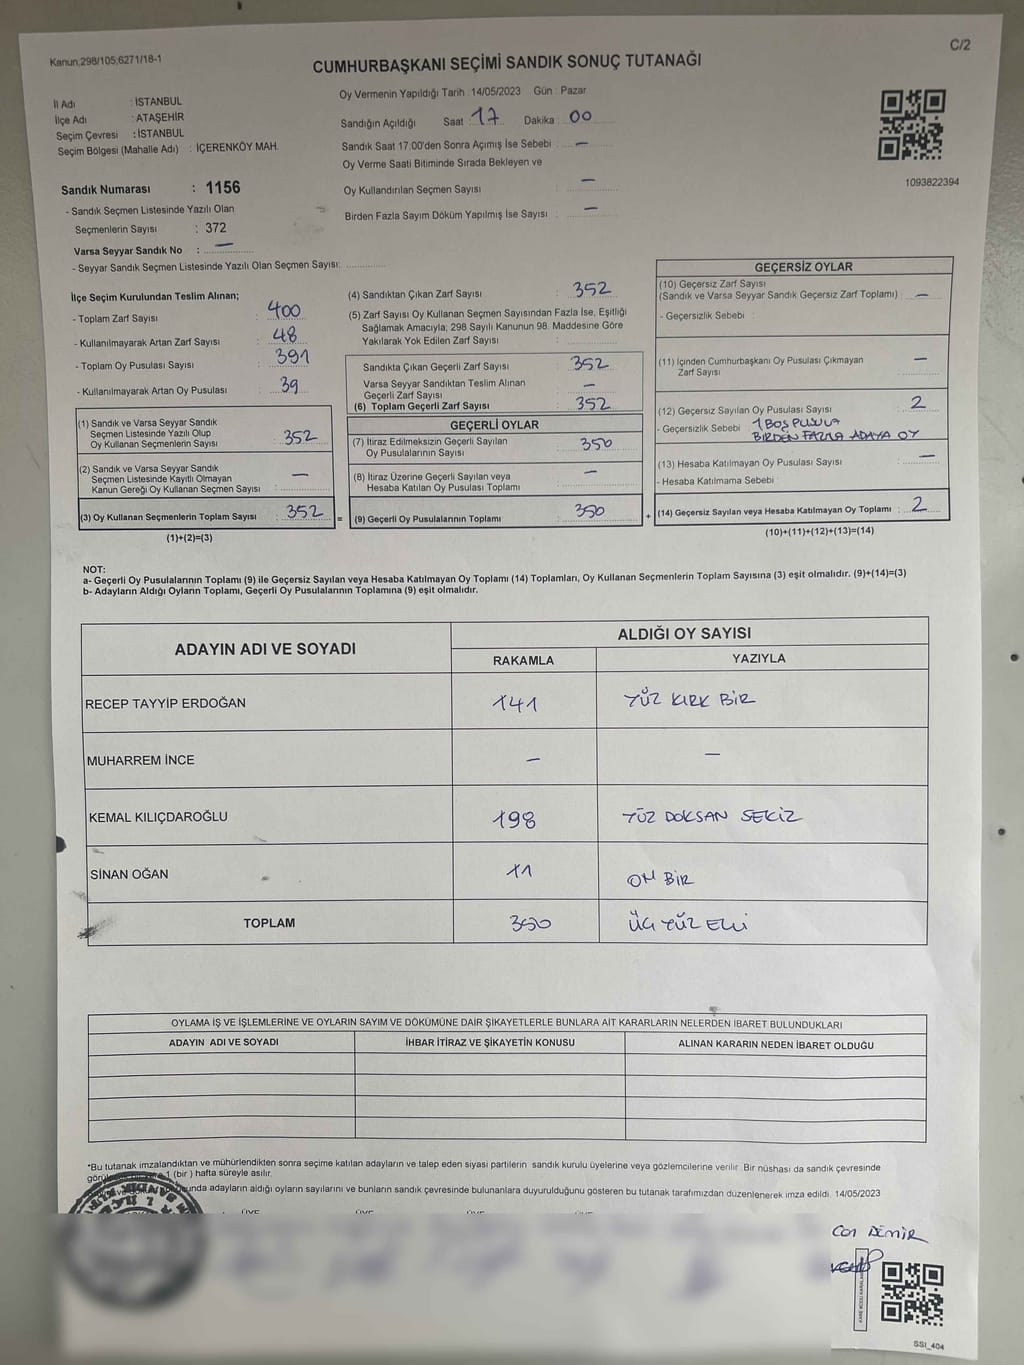 Kanun,298/105,6271/18-1
C/2
CUMHURBAŞKANI SEÇİMİ SANDIK SONUÇ TUTANAĞI
İl Adı : İSTANBUL
İlçe Adı : ATAŞEHİR
Seçim Çevresi : İSTANBUL
Seçim Bölgesi (Mahalle Adı) : İÇERENKÖY MAH.
Sandık Numarası : 1156
- Sandık Seçmen Listesinde Yazılı Olan
Seçmenlerin Sayısı : 372
Varsa Seyyar Sandık No : —
- Seyyar Sandık Seçmen Listesinde Yazılı Olan Seçmen Sayısı:
Oy Vermenin Yapıldığı Tarih : 14/05/2023 Gün : Pazar
Sandığın Açıldığı Saat : 17 Dakika : 00
Sandık Saat 17:00'den Sonra Açımış İse Sebebi : —
Oy Verme Saati Bitiminde Sırada Bekleyen ve
Oy Kullandırılan Seçmen Sayısı : —
Birden Fazla Sayım Döküm Yapılmış İse Sayısı : —
1093822394
İlçe Seçim Kurulundan Teslim Alınan;
- Toplam Zarf Sayısı : 400
- Kullanılmayarak Artan Zarf Sayısı : 48
- Toplam Oy Pusulası Sayısı : 391
- Kullanılmayarak Artan Oy Pusulası : 39
(1) Sandık ve Varsa Seyyar Sandık
Seçmen Listesinde Yazılı Olup
Oy Kullanan Seçmenlerin Sayısı : 352
(2) Sandık ve Varsa Seyyar Sandık
Seçmen Listesinde Kayıtlı Olmayan
Kanun Gereği Oy Kullanan Seçmen Sayısı : —
(3) Oy Kullanan Seçmenlerin Toplam Sayısı : 352
(1)+(2)=(3)
(4) Sandıktan Çıkan Zarf Sayısı : 352
(5) Zarf Sayısı Oy Kullanan Seçmen Sayısından Fazla İse, Eşitliği
Sağlamak Amacıyla; 298 Sayılı Kanunun 98. Maddesine Göre
Yakılarak Yok Edilen Zarf Sayısı :
Sandıkta Çıkan Geçerli Zarf Sayısı : 352
Varsa Seyyar Sandıktan Teslim Alınan
Geçerli Zarf Sayısı : —
(6) Toplam Geçerli Zarf Sayısı : 352
GEÇERLİ OYLAR
(7) İtiraz Edilmeksizin Geçerli Sayılan
Oy Pusulalarının Sayısı : 350
(8) İtiraz Üzerine Geçerli Sayılan veya
Hesaba Katılan Oy Pusulası Toplamı : —
= (9) Geçerli Oy Pusulalarının Toplamı : 350
GEÇERSİZ OYLAR
(10) Geçersiz Zarf Sayısı
(Sandık ve Varsa Seyyar Sandık Geçersiz Zarf Toplamı) : —
- Geçersizlik Sebebi :
(11) İçinden Cumhurbaşkanı Oy Pusulası Çıkmayan
Zarf Sayısı : —
(12) Geçersiz Sayılan Oy Pusulası Sayısı : 2
- Geçersizlik Sebebi : 1 BOŞ PUSULA
BİRDEN FAZLA ADAYA OY
(13) Hesaba Katılmayan Oy Pusulası Sayısı : —
- Hesaba Katılmama Sebebi :
+ (14) Geçersiz Sayılan veya Hesaba Katılmayan Oy Toplamı : 2
(10)+(11)+(12)+(13)=(14)
NOT:
a- Geçerli Oy Pusulalarının Toplamı (9) ile Geçersiz Sayılan veya Hesaba Katılmayan Oy Toplamı (14) Toplamları, Oy Kullanan Seçmenlerin Toplam Sayısına (3) eşit olmalıdır. (9)+(14)=(3)
b- Adayların Aldığı Oyların Toplamı, Geçerli Oy Pusulalarının Toplamına (9) eşit olmalıdır.
ADAYIN ADI VE SOYADI
ALDIĞI OY SAYISI
RAKAMLA YAZIYLA
RECEP TAYYİP ERDOĞAN 141 YÜZ KIRK BİR
MUHARREM İNCE — —
KEMAL KILIÇDAROĞLU 198 YÜZ DOKSAN SEKİZ
SİNAN OĞAN 11 ON BİR
TOPLAM 350 ÜÇ YÜZ ELLİ
OYLAMA İŞ VE İŞLEMLERİNE VE OYLARIN SAYIM VE DÖKÜMÜNE DAİR ŞİKAYETLERLE BUNLARA AİT KARARLARIN NELERDEN İBARET BULUNDUKLARI
ADAYIN ADI VE SOYADI İHBAR İTİRAZ VE ŞİKAYETİN KONUSU ALINAN KARARIN NEDEN İBARET OLDUĞU
*Bu tutanak imzalandıktan ve mühürlendikten sonra seçime katılan adayların ve talep eden siyasi partilerin sandık kurulu üyelerine veya gözlemcilerine verilir. Bir nüshası da sandık çevresinde
1 (bir ) hafta süreyle asılır.
adayların aldığı oyların sayılarını ve bunların sandık çevresinde bulunanlara duyurulduğunu gösteren bu tutanak tarafımızdan düzenlenerek imza edildi. 14/05/2023
ÜYE ÜYE ÜYE ÜYE
DEMİR
SSI_404